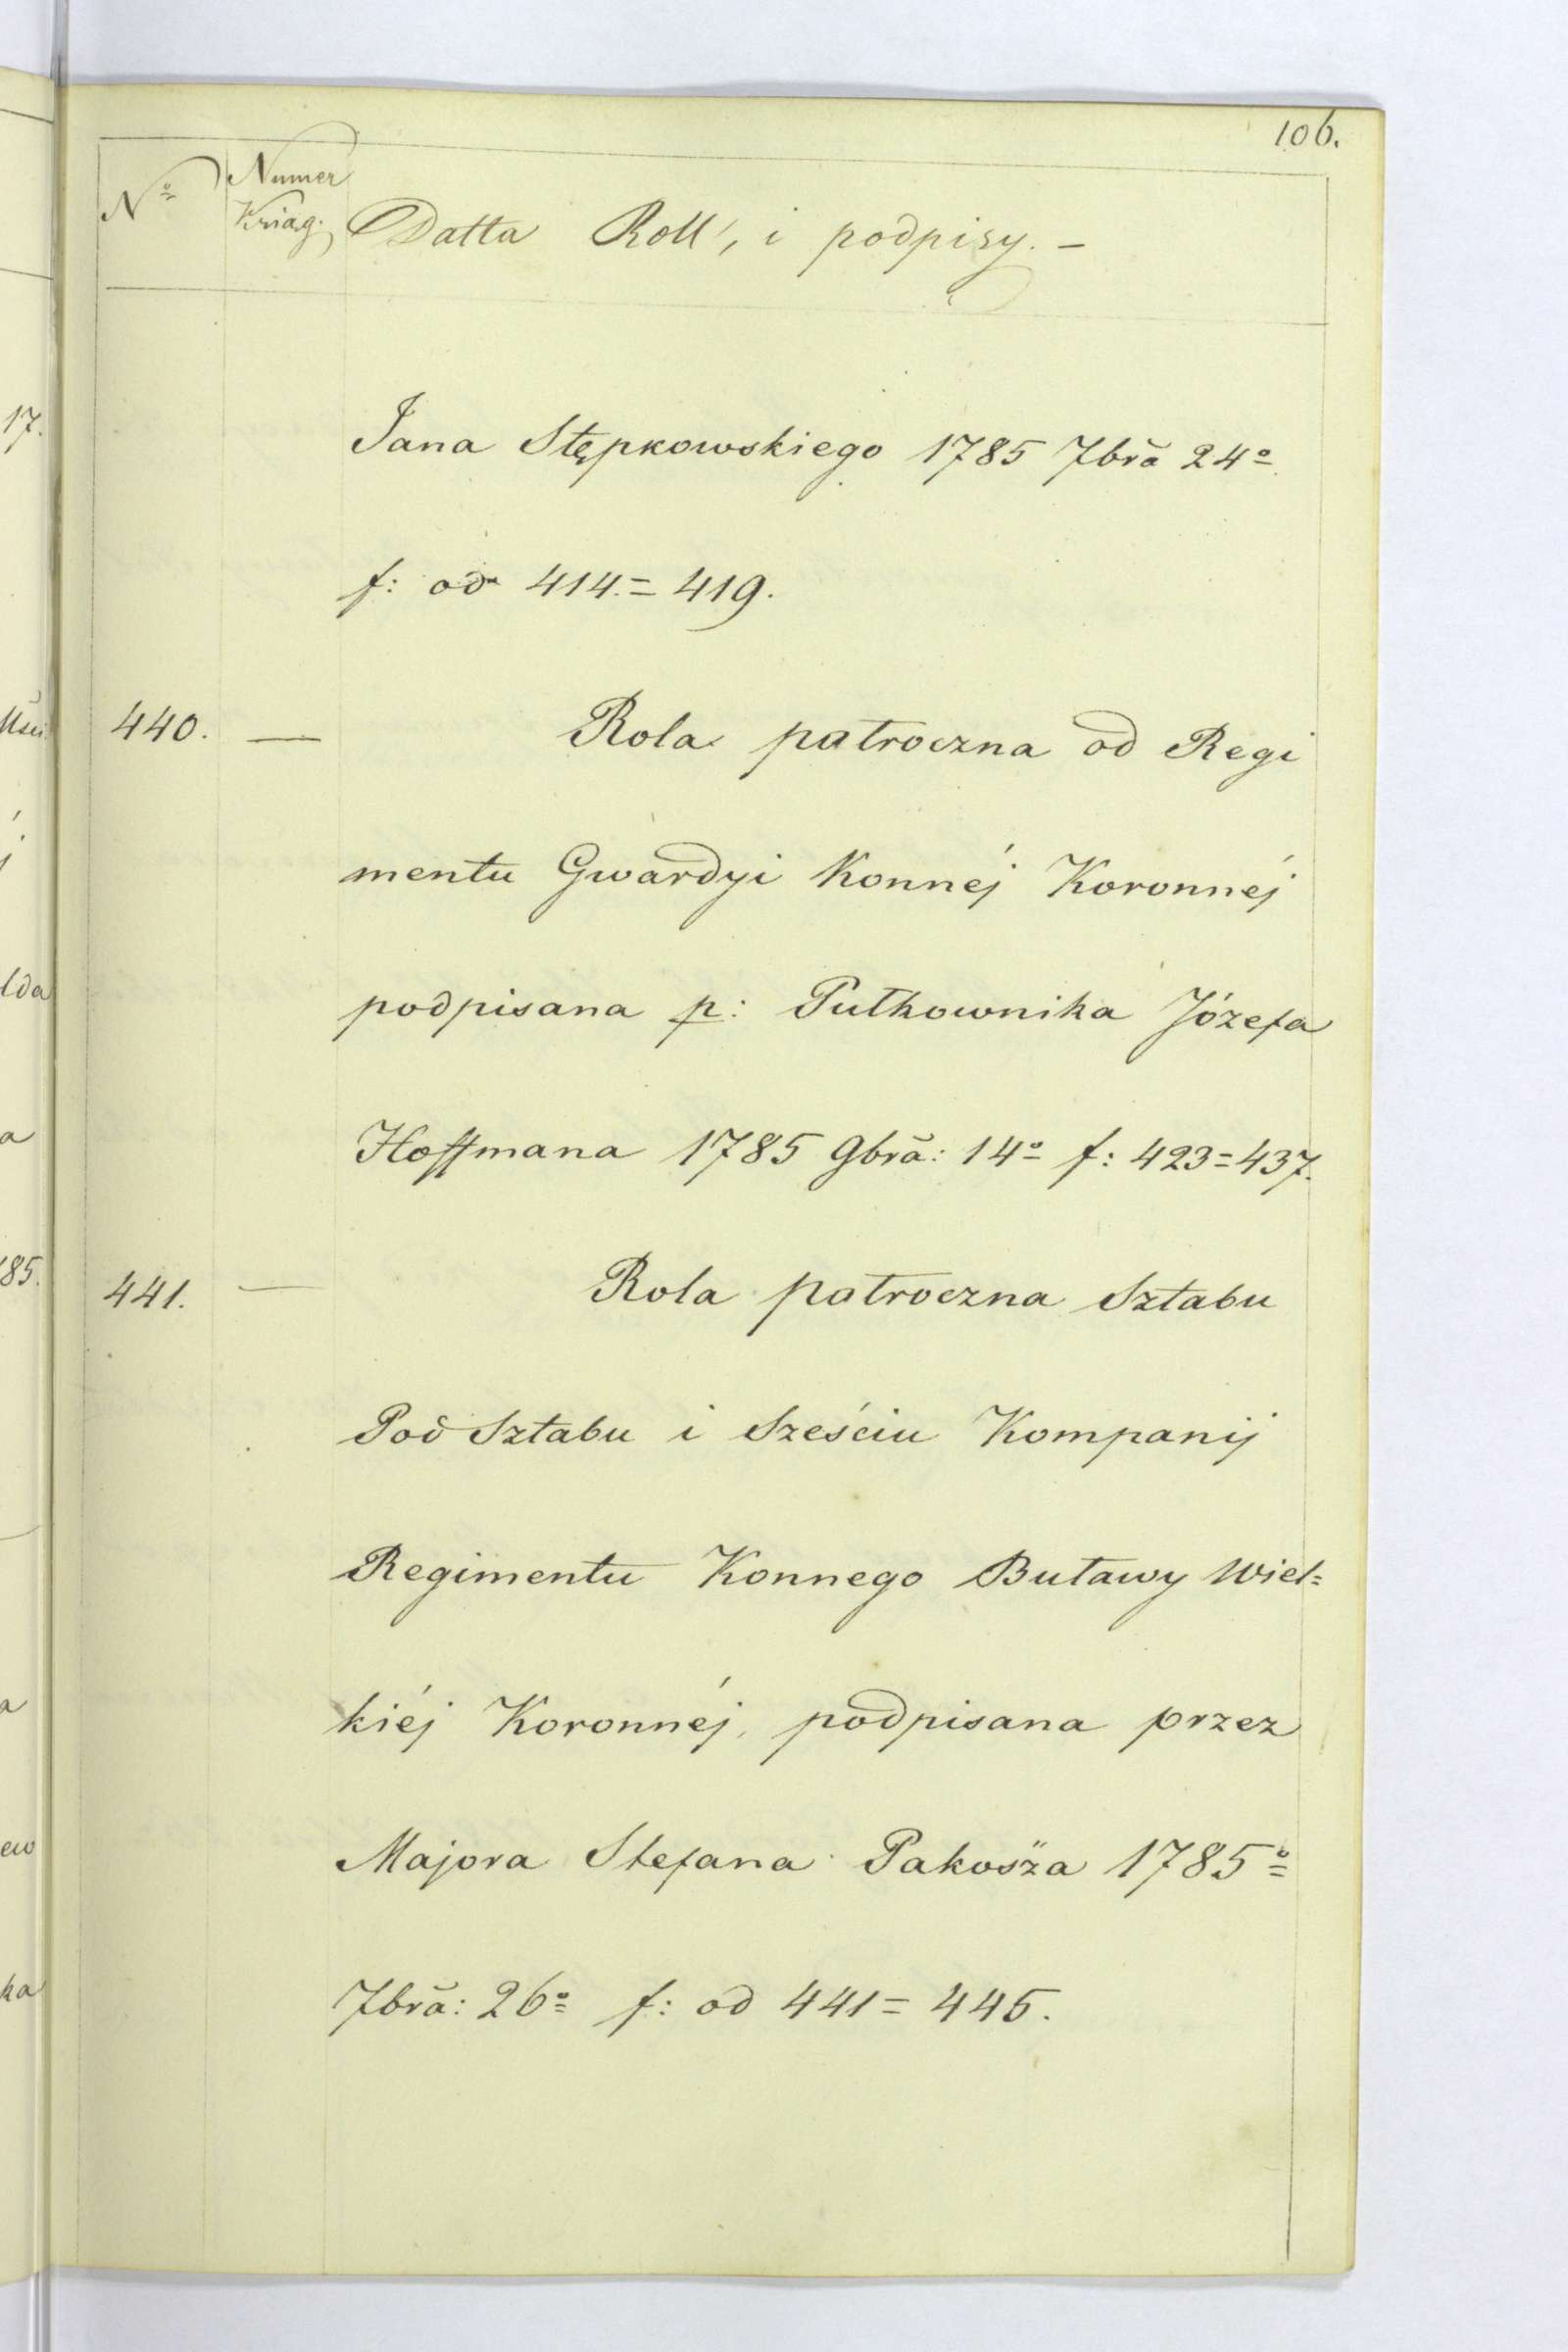 106.
Nº Numer
Kriąg. Datta Roll', i podpisy. –
Jana Stępkowskiego 1785 7brã 24º
f: od 414. = 419.
440. — Rola patroczna od Regi
mentu Gwardyi Konnéj Koronnéj
podpisana p: Pułkownika Józefa
Hoffmana 1785 9brã: 14º f: 423 = 437.
441. — Rola patroczna Sztabu
Pod Sztabu i Sześciu Kompanij
Regimentu Konnego Buławy Wiel=
kiéj Koronnéj, podpisana przez
Majora Stefana Pakosza 1785º
7brã: 26º f: od 441 = 445.